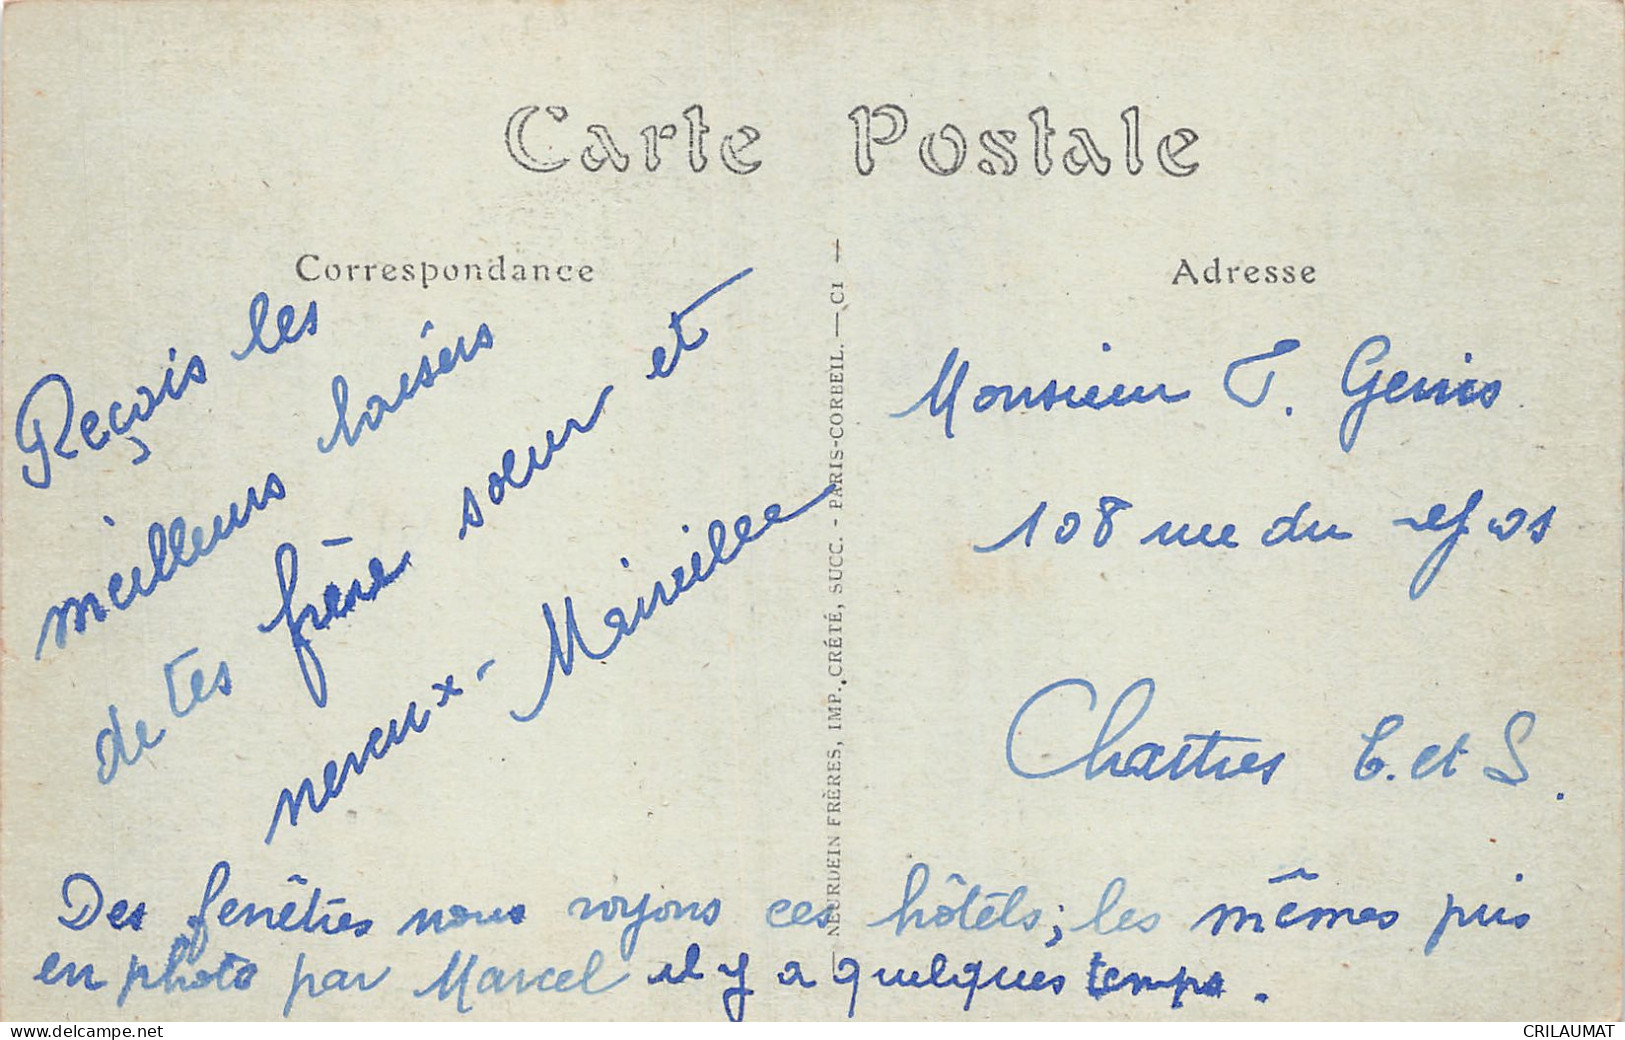 Carte Postale
Correspondance
Reçois les
meilleurs baisers
de tes frère sœur et
neveux - Mireille
NEURDEIN FRÈRES, IMP. CRÉTÉ, SUCC. - PARIS-CORBEIL. — C1 —
Adresse
Monsieur T. Genis
108 rue du
Chartres E. et L.
Des fenêtres nous voyons ces hôtels; les mêmes pris
en photo par Marcel il y a quelques temps.
www.delcampe.net
CRILAUMAT